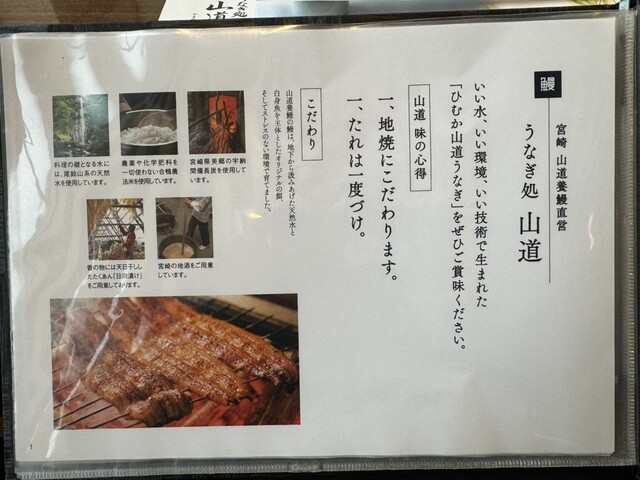 鰻
宮崎 山道養鰻直営
うなぎ処 山道
いい水、いい環境、いい技術で生まれた
「ひむか山道うなぎ」をぜひご賞味ください。
山道 味の心得
一、地焼にこだわります。
一、たれは一度づけ。
こだわり
山道養鰻の鰻は、地下から汲みあげた天然水と
白身魚を主体としたオリジナルの餌、
そしてストレスのない環境で育てました。
宮崎県美郷の宇納
間備長炭を使用して
います。
農薬や化学肥料を
一切使わない合鴨農
法米を使用しています。
料理の礎となる水に
は、尾鈴山系の天然
水を使用しています。
宮崎の地酒をご用意
しています。
香の物には天日干し
したたくあん「日向漬け」
をご用意しております。
1
山道